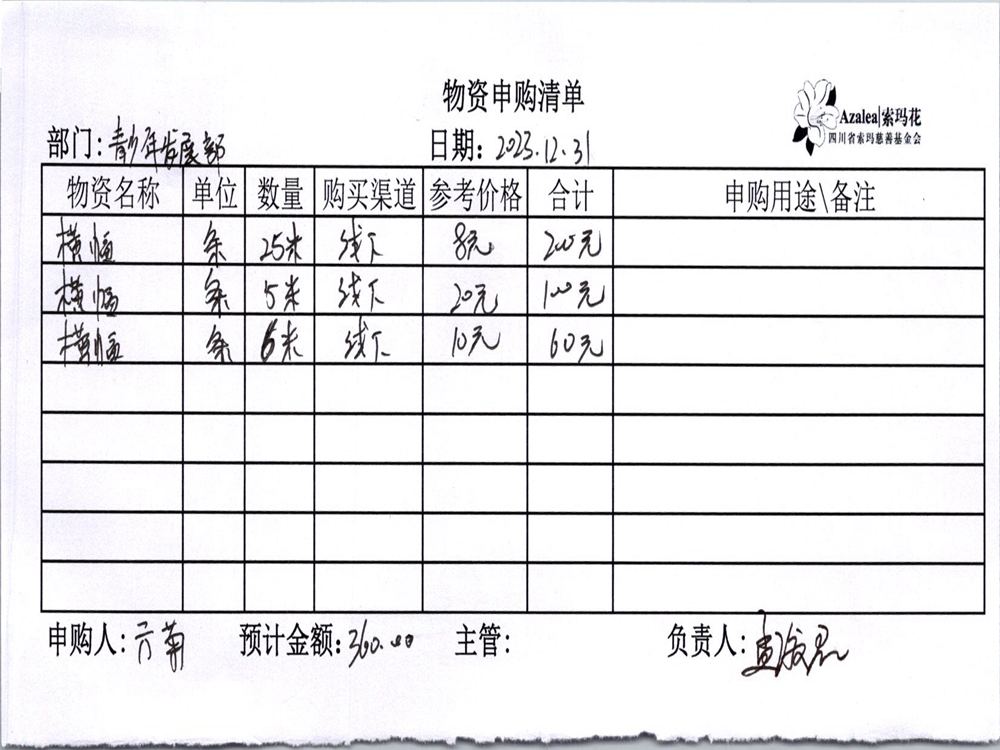 物资申购清单
Azalea|索玛花
四川省索玛慈善基金会
部门:青少年发展部 日期:2023.12.31
物资名称 单位 数量 购买渠道 参考价格 合计 申购用途\备注
横幅 条 25米 线下 8元 200元
横幅 条 5米 线下 20元 100元
横幅 条 6米 线下 10元 60元
申购人: 预计金额:360.00 主管: 负责人: